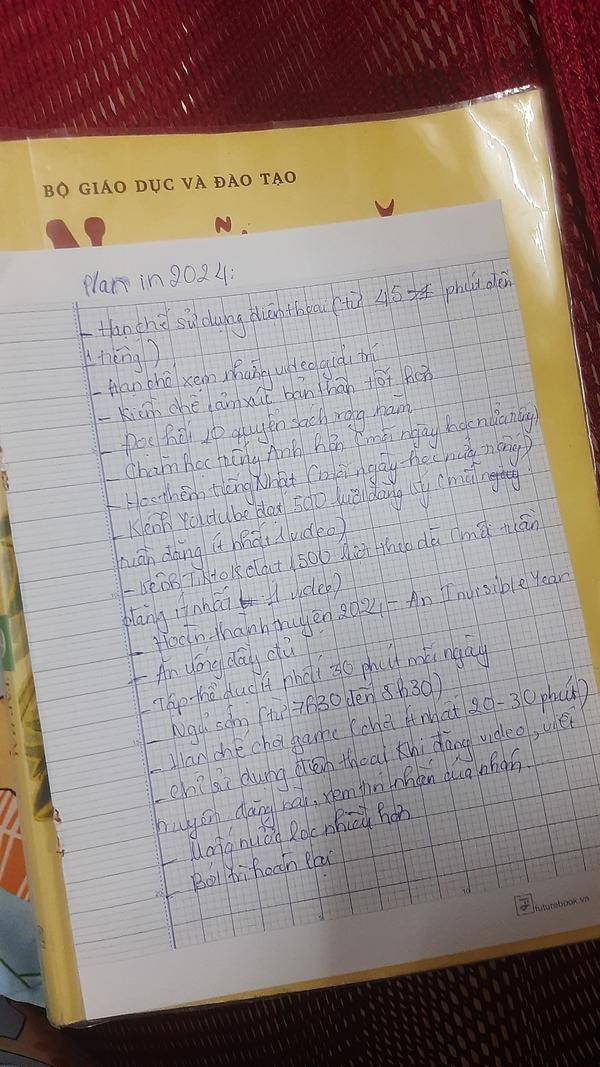 BỘ GIÁO DỤC VÀ ĐÀO TẠO
Plan in 2024:
- Hạn chế sử dụng điện thoại (từ 45 phút đến
1 tiếng)
- Hạn chế xem những video giải trí
- Kiềm chế cảm xúc bản thân tốt hơn
- Đọc hết 10 quyển sách trong năm
- Chăm học tiếng Anh hơn (mỗi ngày học nửa tiếng)
- Học thêm tiếng Nhật (mỗi ngày học nửa tiếng)
- Kênh Youtube đạt 500 lượt đăng ký (mỗi
tuần đăng ít nhất 1 video)
- Kênh Tiktok đạt 1500 lượt theo dõi (mỗi tuần
đăng ít nhất 1 video)
- Hoàn thành truyện 2024 - An Invisible Year
- Ăn uống đầy đủ
- Tập thể dục ít phải 30 phút mỗi ngày
- Ngủ sớm (từ 7h30 đến 8h30)
- Hạn chế chơi game (chơi ít nhất 20-30 phút)
- Chỉ sử dụng điện thoại khi đăng video, viết
truyện, đăng bài, xem tin nhắn của nhóm...
- Uống nước lọc nhiều hơn
- Bớt trì hoãn lại
futurebook.vn